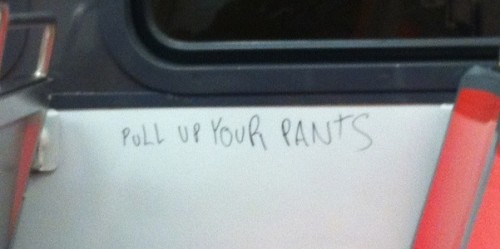 PULL UP YOUR PANTS